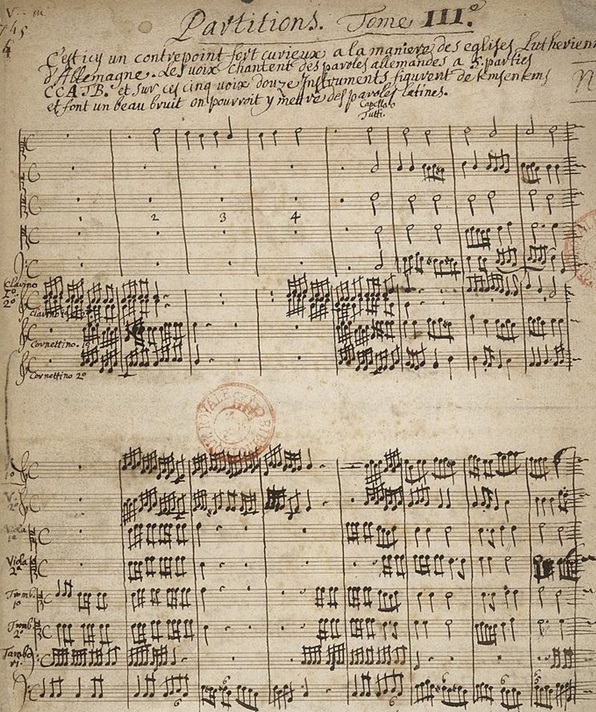 Partitions. Tome III.e
C'est icy un contrepoint fort curieux a la maniere des eglises Lutherien
d'Allemagne. Les voix chantent des paroles allemandes a 5. parties
CCATB. et sur ces cinq voix douze Instruments figurent de
et font un beau bruit on pourroit y mettre des paroles latines.
Capella
Tutti
2 3 4
Clarino
1º
2º
Cornettino.
Cornettino 2º
1º
V. 2º
Viola 1ª
Viola 2ª
Tromb. 1º
Tromb. 2º
6